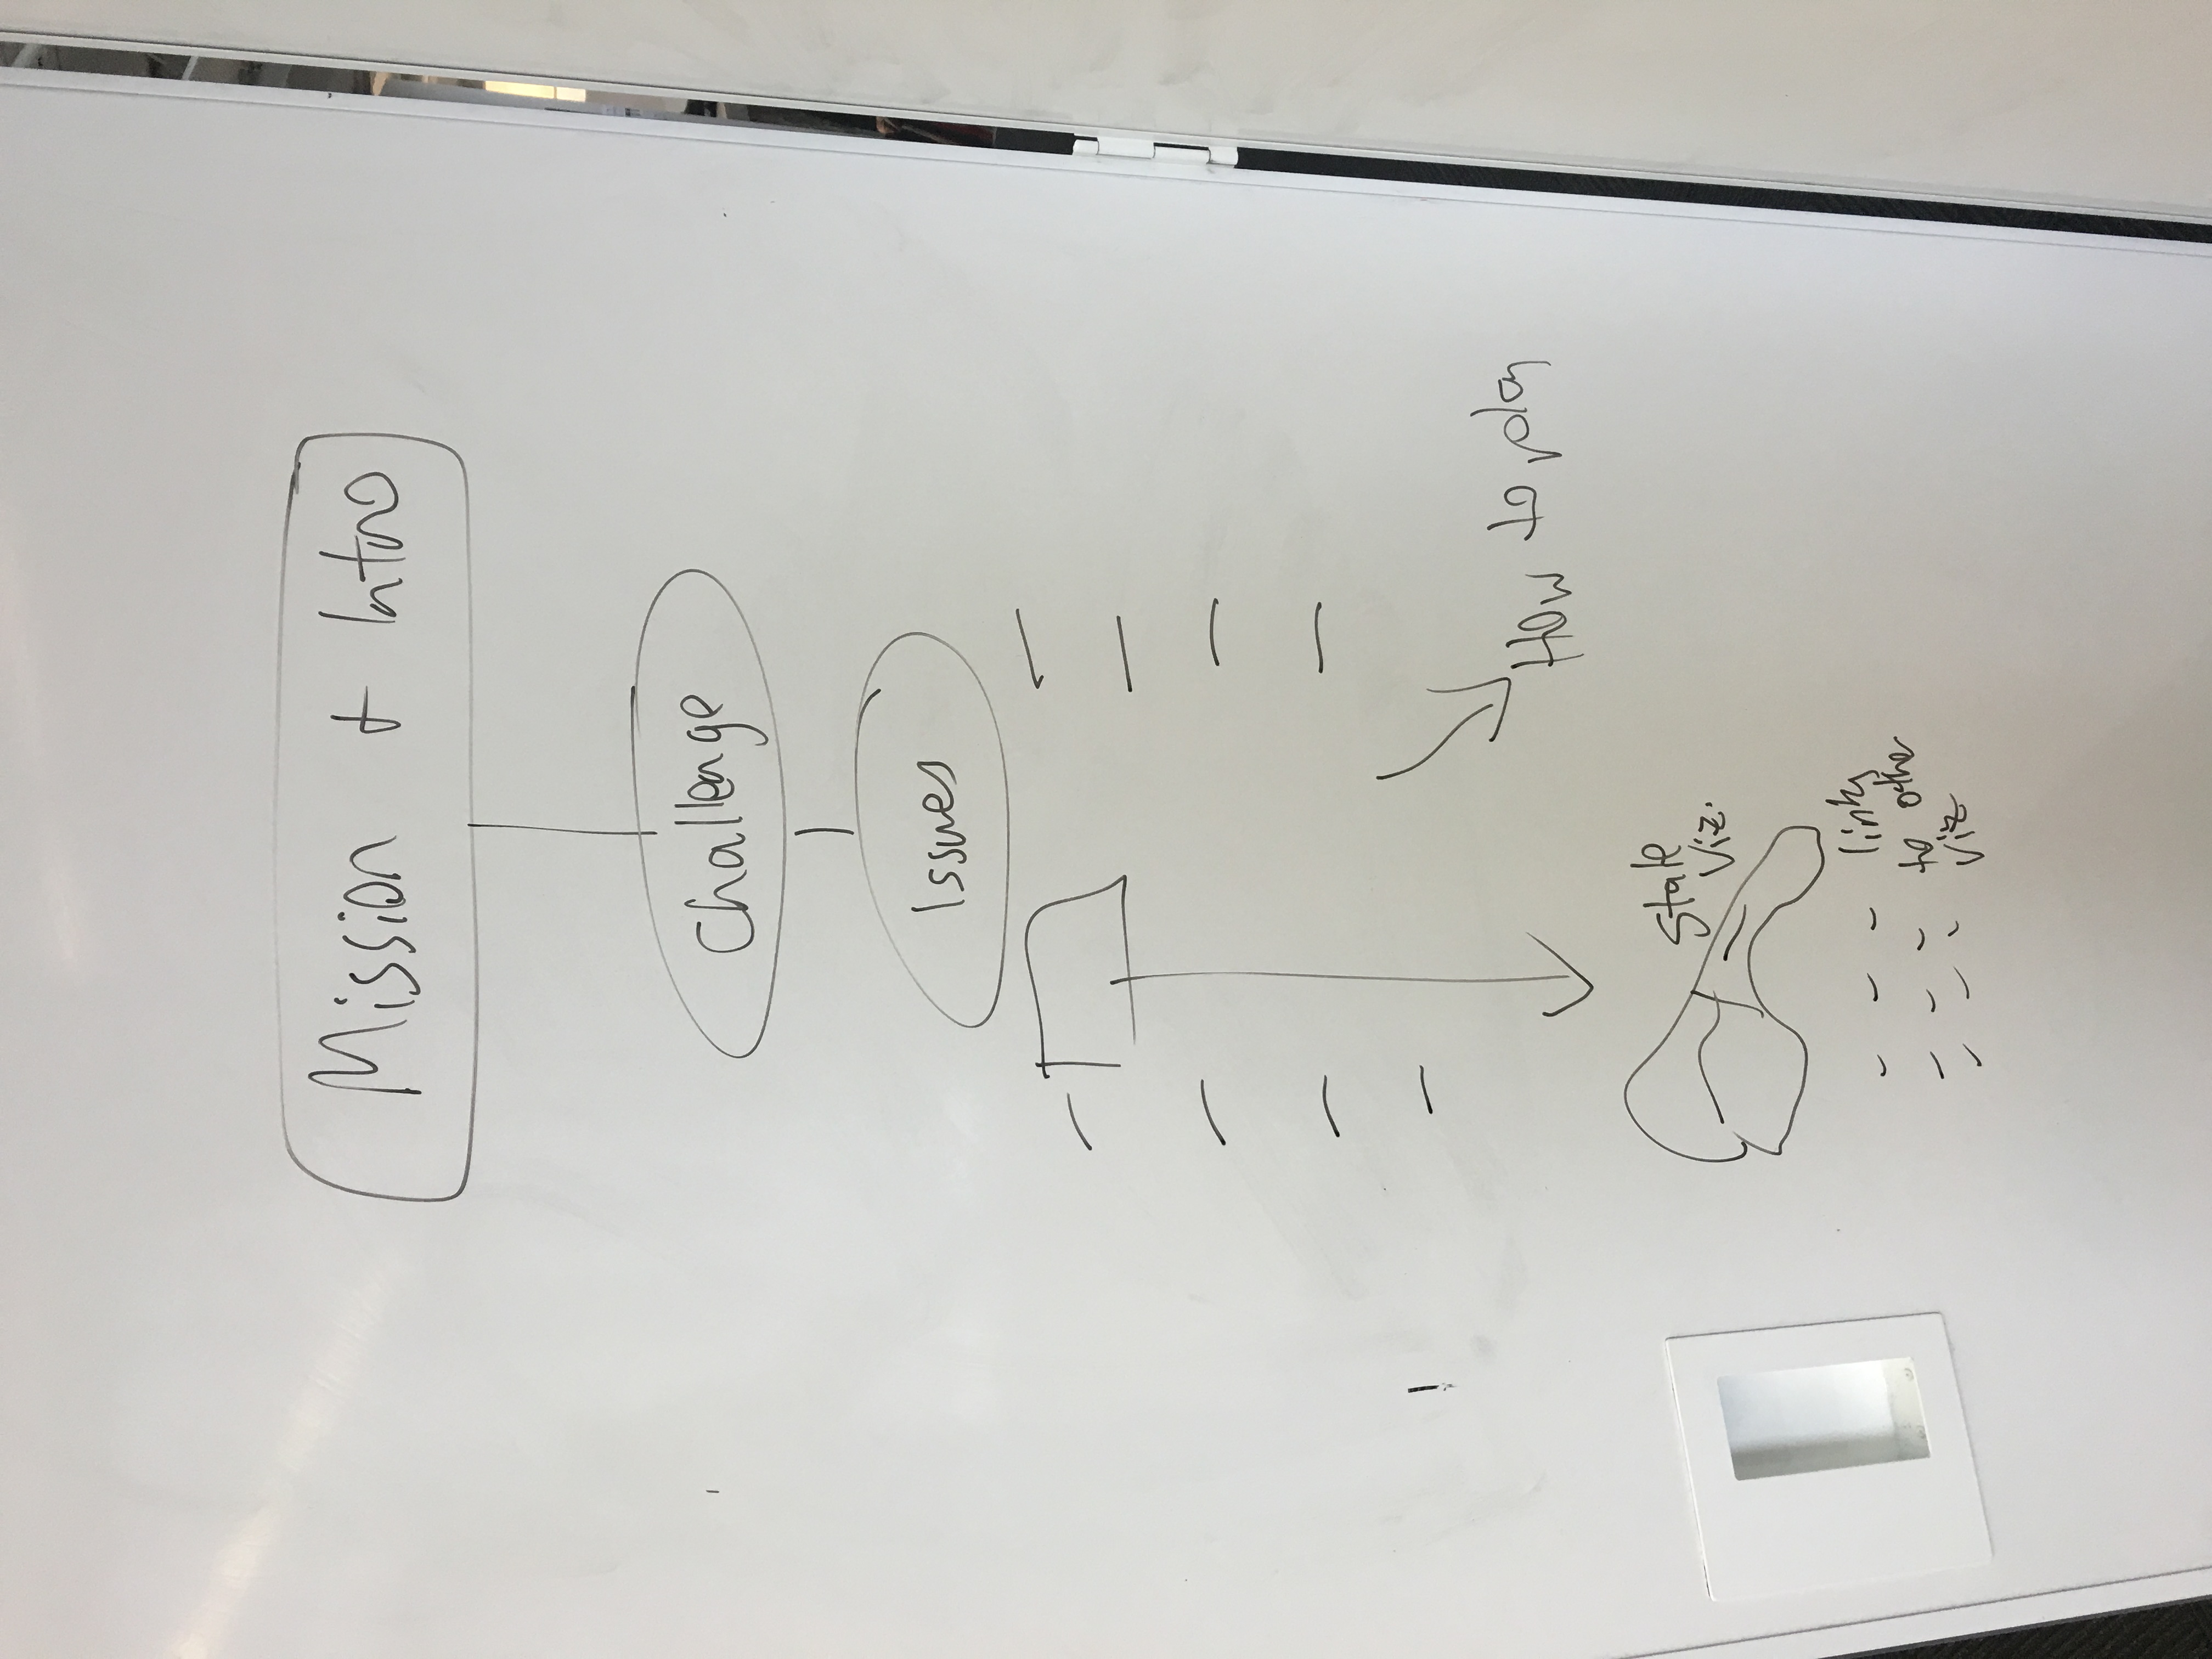 Mission + Intro
Challenge
Issues
How to play
State
Viz.
links
to other
Viz